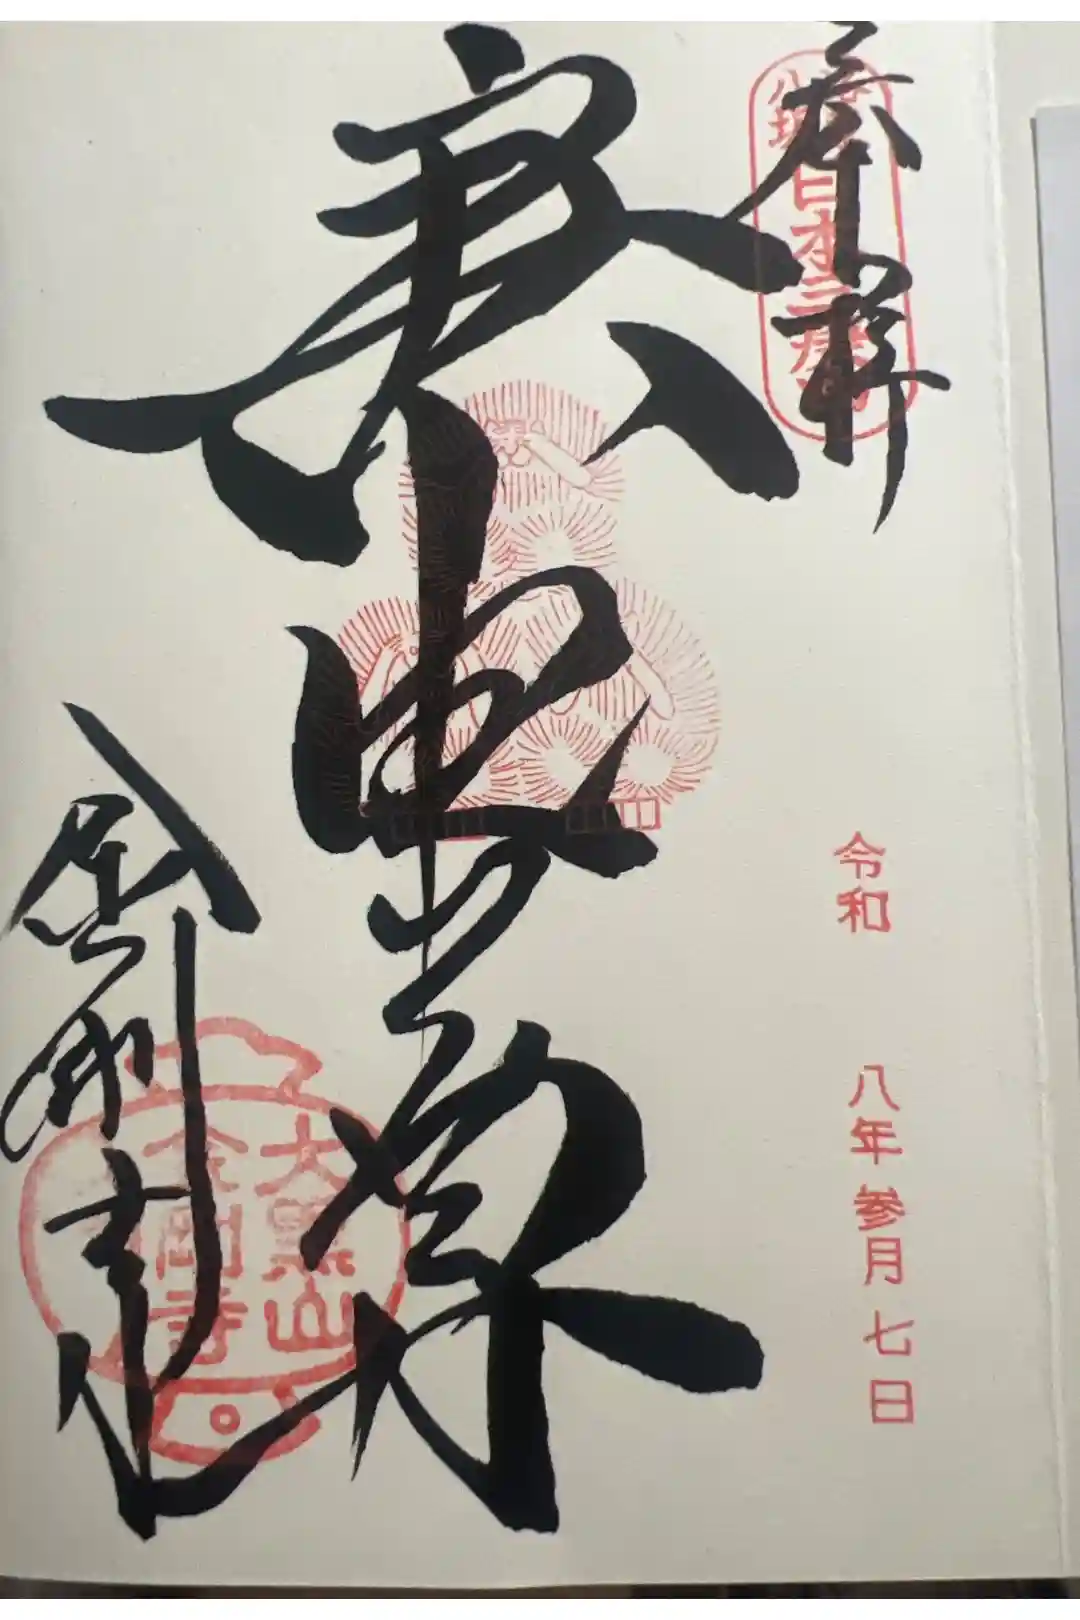 奉拝
日本三庚申
八坂
庚申尊
令和 八年参月七日
金剛寺
大黒山
金剛寺